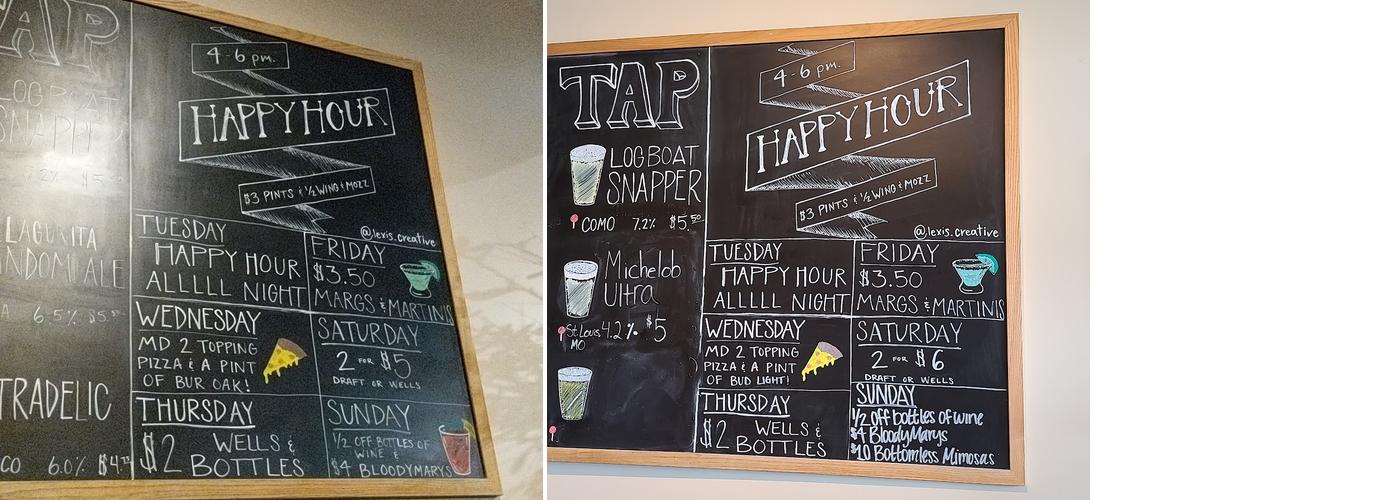 TAP
LOGBOAT
7.2% $5
LAGUNITA
NDOM ALE
A 6.5% $5.50
TRADELIC
CO 6.0% $4.75
4-6 pm.
HAPPY HOUR
$3 PINTS & 1/2 WING & MOZZ
@lexis.creative
TUESDAY
HAPPY HOUR
ALLLLL NIGHT
FRIDAY
$3.50
MARGS & MARTINIS
WEDNESDAY
MD 2 TOPPING
PIZZA & A PINT
OF BUR OAK!
SATURDAY
2 FOR $5
DRAFT OR WELLS
THURSDAY
$2 WELLS &
BOTTLES
SUNDAY
1/2 OFF BOTTLES OF
WINE &
$4 BLOODYMARYS
TAP
LOGBOAT
SNAPPER
COMO 7.2% $5.50
Michelob
Ultra
St. Louis, 4.2% $5
MO
4-6 pm.
HAPPY HOUR
$3 PINTS & 1/2 WING & MOZZ
@lexis.creative
TUESDAY
HAPPY HOUR
ALLLLL NIGHT
FRIDAY
$3.50
MARGS & MARTINIS
WEDNESDAY
MD 2 TOPPING
PIZZA & A PINT
OF BUD LIGHT!
SATURDAY
2 FOR $6
DRAFT OR WELLS
THURSDAY
$2 WELLS &
BOTTLES
SUNDAY
1/2 off bottles of wine
$4 BloodyMarys
$10 Bottomless Mimosas